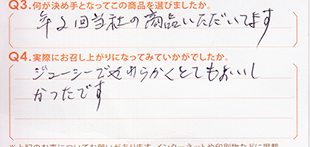 Q3.何が決め手となってこの商品を選びましたか。
年2回当社の商品いただいてます
Q4.実際にお召し上がりになってみていかがでしたか。
ジューシーでやわらかくとてもおいし
かったです